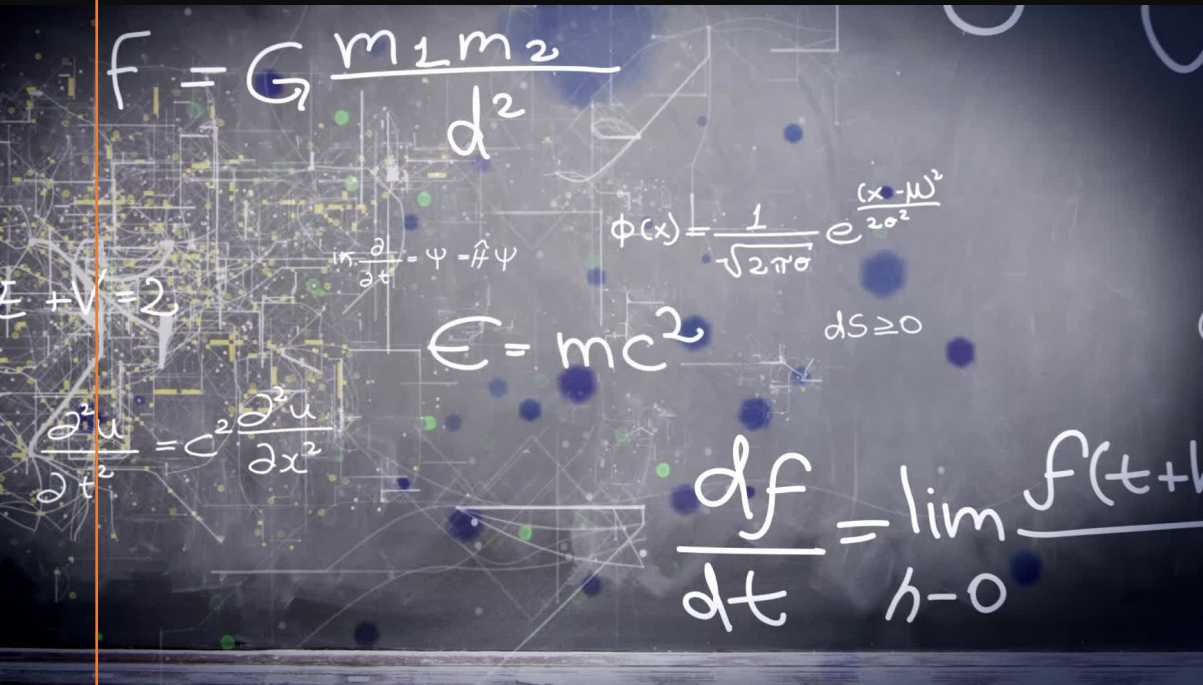 f = G m1m2 / d²
Φ(x) = 1 / √2πσ e (x-μ)² / 2σ²
∂ / ∂t = Ψ = ĤΨ
+V=2
E = mc²
dS ≥ 0
∂²u / ∂t² = c² ∂²u / ∂x²
df / dt = lim h-0 f(t+h